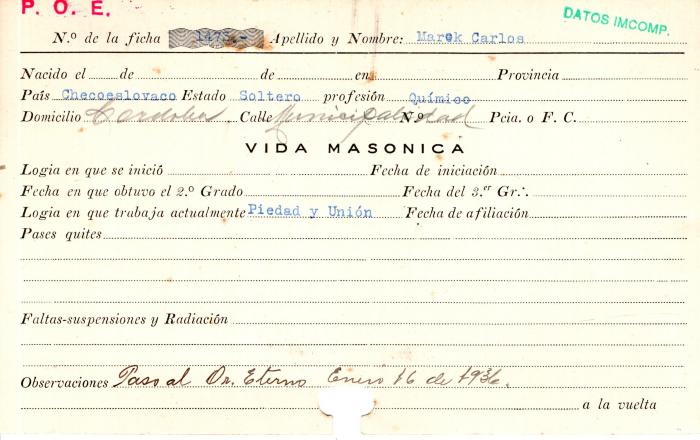 P. O. E.
DATOS IMCOMP.
N.º de la ficha 1475.- Apellido y Nombre: Marek Carlos
Nacido el de de en Provincia
País Checoeslovaco Estado Soltero profesión Químico
Domicilio Cordoba Calle Municipalidad N.º Pcia. o F. C.
VIDA MASONICA
Logia en que se inició Fecha de iniciación
Fecha en que obtuvo el 2.º Grado Fecha del 3.er Gr∴
Logia en que trabaja actualmente Piedad y Unión Fecha de afiliación
Pases quites
Faltas-suspensiones y Radiación
Observaciones Paso al Or. Eterno Enero 16 de 1936.
a la vuelta